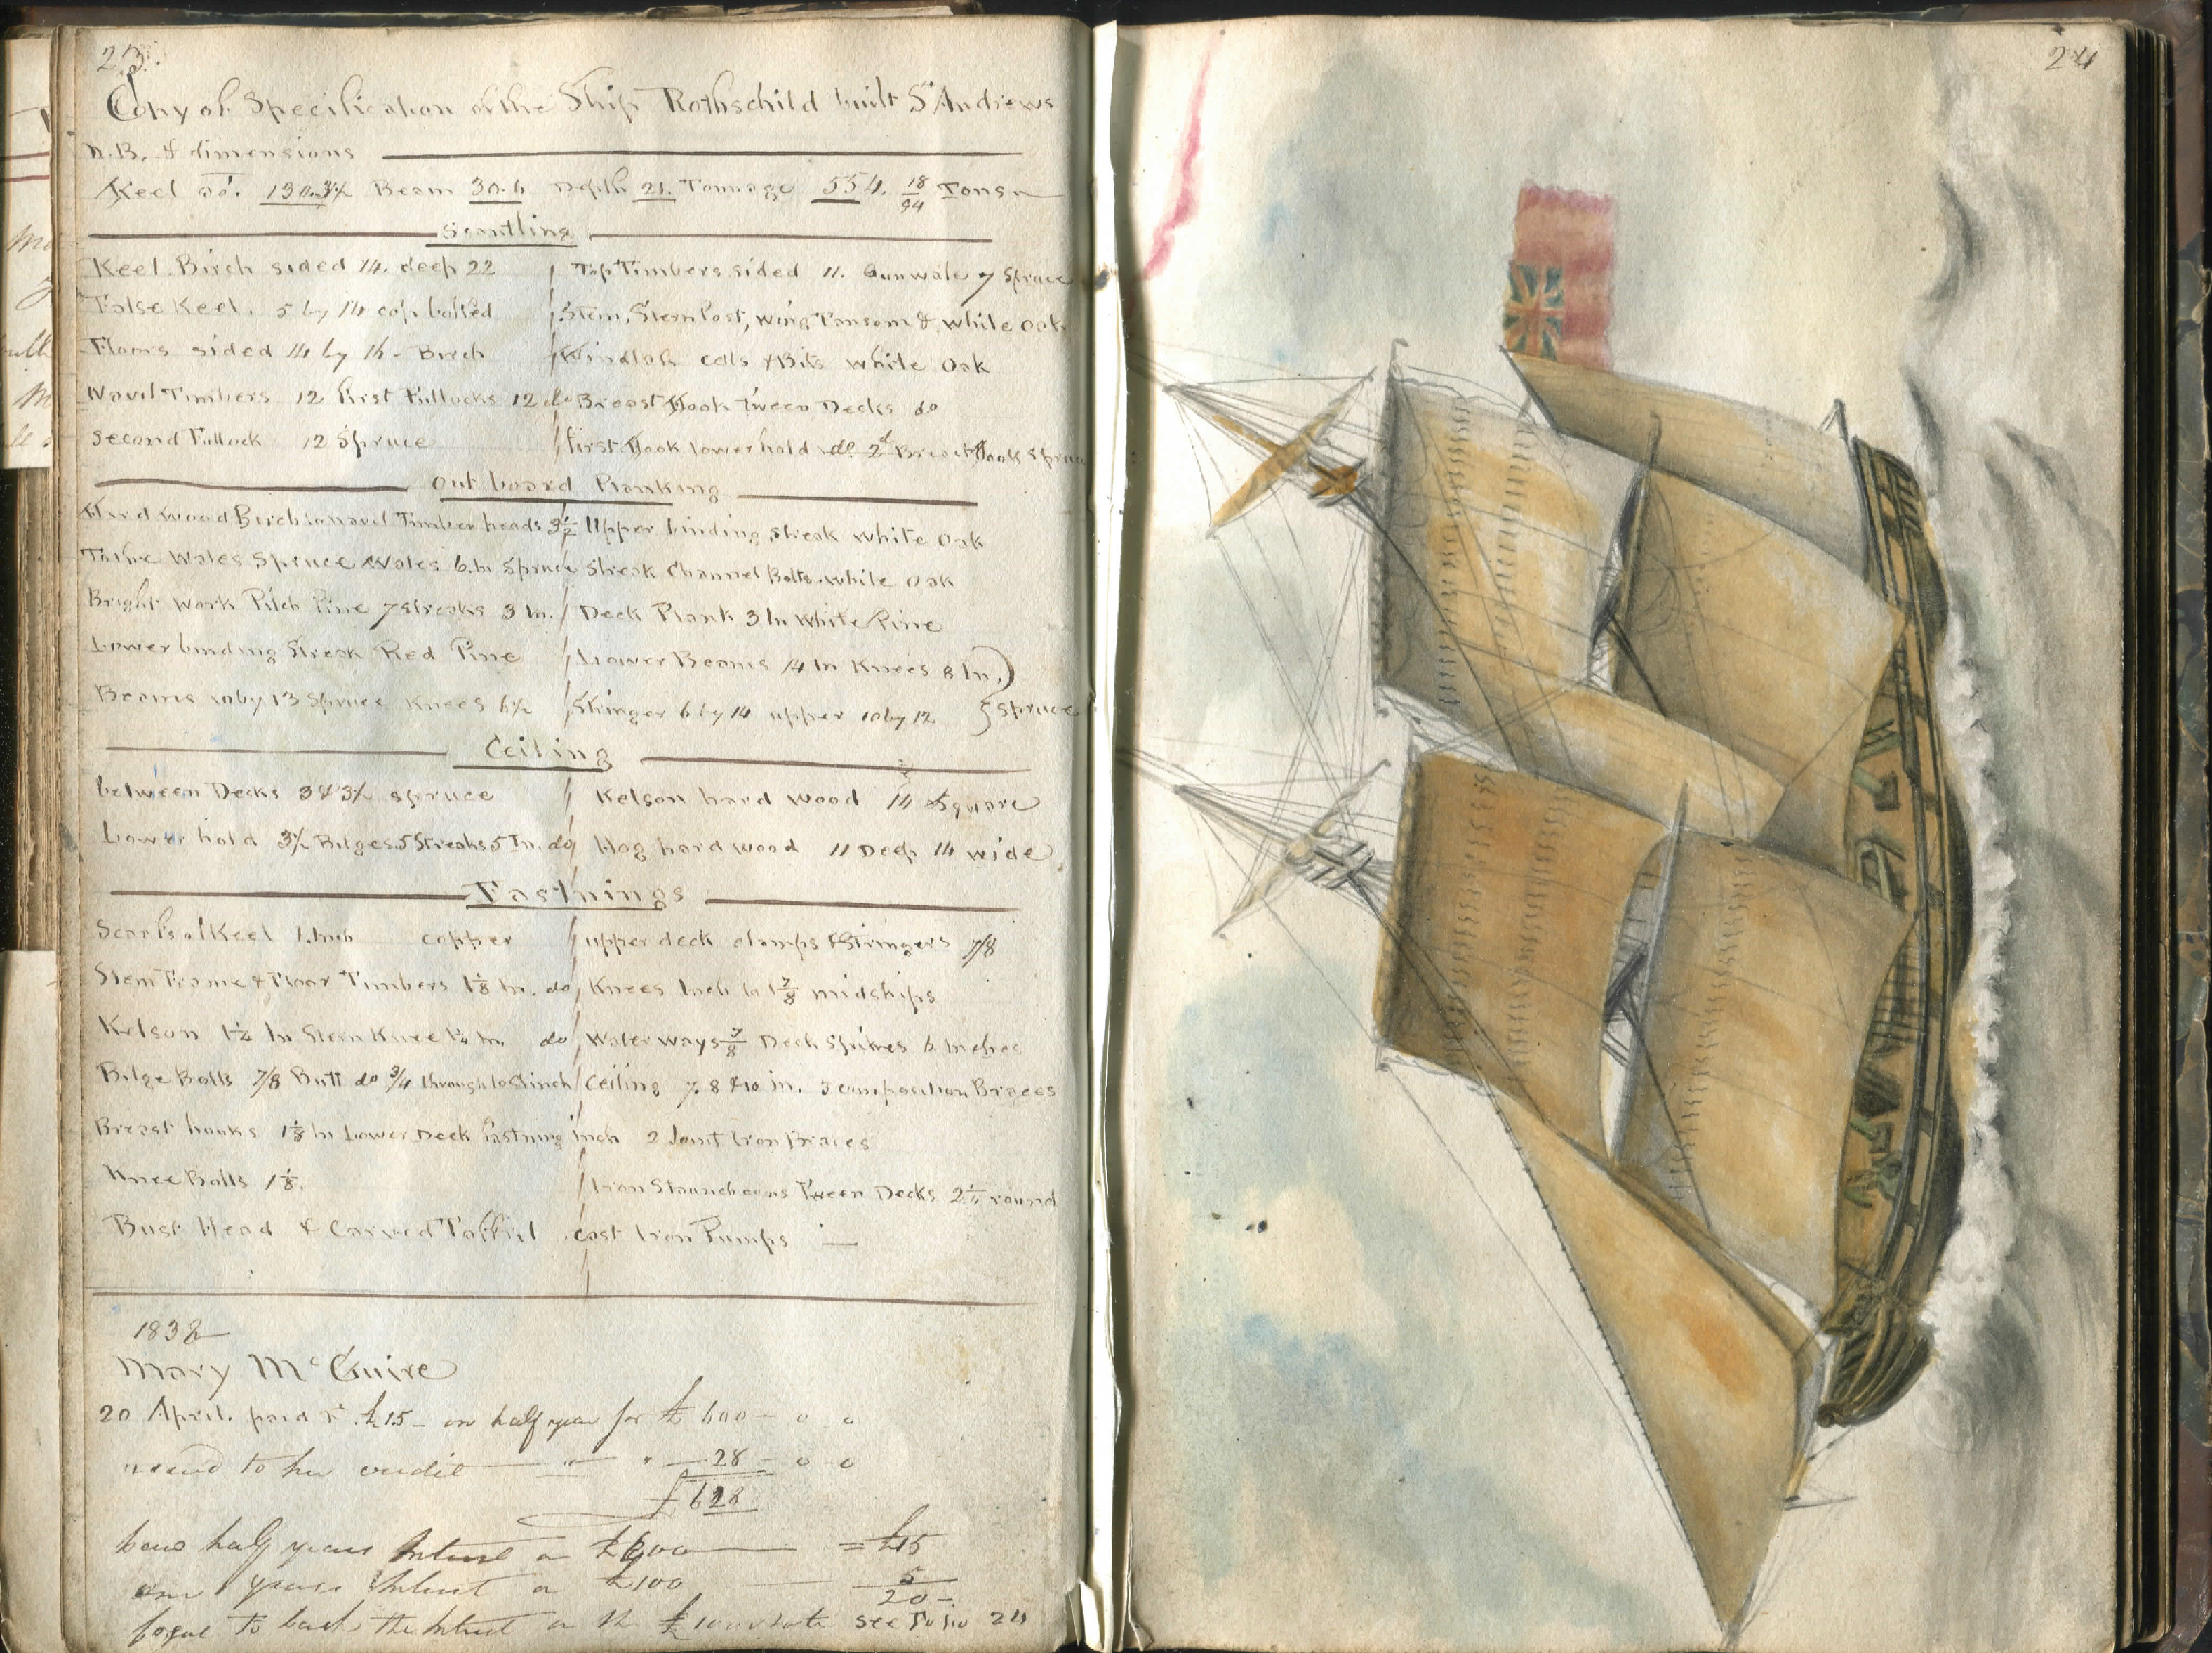 23.
Copy of Specification of the Ship Rothschild built St Andrews
N.B. & dimensions
Keel do. 130.3½ Beam 30.6 Depth 21. Tonnage 554. 18/94 Tons
Scantling
Keel. Birch sided 14. deep 22 / Top Timbers sided 11. Gunwale 7 Spruce
False Keel. 5 by 14 cop bolted / Stem, Stern Post, wing Transom &. white oak
Floors sided 14 by 16 - Birch / Windlass cals & Bits white Oak
Navil Timbers 12 first Futtocks 12 do Breast Hook Tween Decks do
Second Futtock 12 Spruce / first Hook lower hold do. 2d Breast Hook Spruce
Out board Planking
Hard wood Birch to navil Timber heads 3½ Upper binding streak white Oak
Wales Spruce Wales 6. In Spruce Streak Channel Bolts. white oak
Bright work Pitch Pine 7 streaks 3 In. / Deck Plank 3 In White Pine
Lower binding Streak Red Pine / Lower Beams 14 In Knees 8 In.
Beams 10 by 13 Spruce Knees 6½ / Stringer 6 by 14 upper 10 by 12 } Spruce
Ceiling
between Decks 3 & 3½ spruce / Kelson hard wood 14 Square
Lower hold 3½ Bilges 5 Streaks 5 In. do / Hog hard wood 11 Deep 14 wide
Fastnings
Scarfs of Keel 1. Inch copper / upper deck clamps & Stringers 7/8
Stem Frame & Floor Timbers 1⅛ In. do / Knees Inch to 1 7/8 midships
Kelson 1¼ In Stern Knee 1¼ In. do / Water ways 7/8 Deck Spikes 6 Inches
Bilge Bolts 7/8 Butt do 3/4 through to Clinch / Ceiling 7. 8 & 10 in. 3 composition Braces
Breast hooks 1⅛ In Lower Deck fastning Inch 2 Joint Iron Braces
Knee Bolts 1⅛. / Iron Staunchions Tween Decks 2¼ round
Bust Head & Carved Taffril cast Iron Pumps —
1832
Mary McGuire
20 April. paid £15 - on half year for £600 - 0 - 0
to her credit " " 28 - 0 - 0
£628
half years Intrest on £600 = £15
one years Intrest on £100 5
20 -
forgot to back the Intrest on the note see Folio 24
24